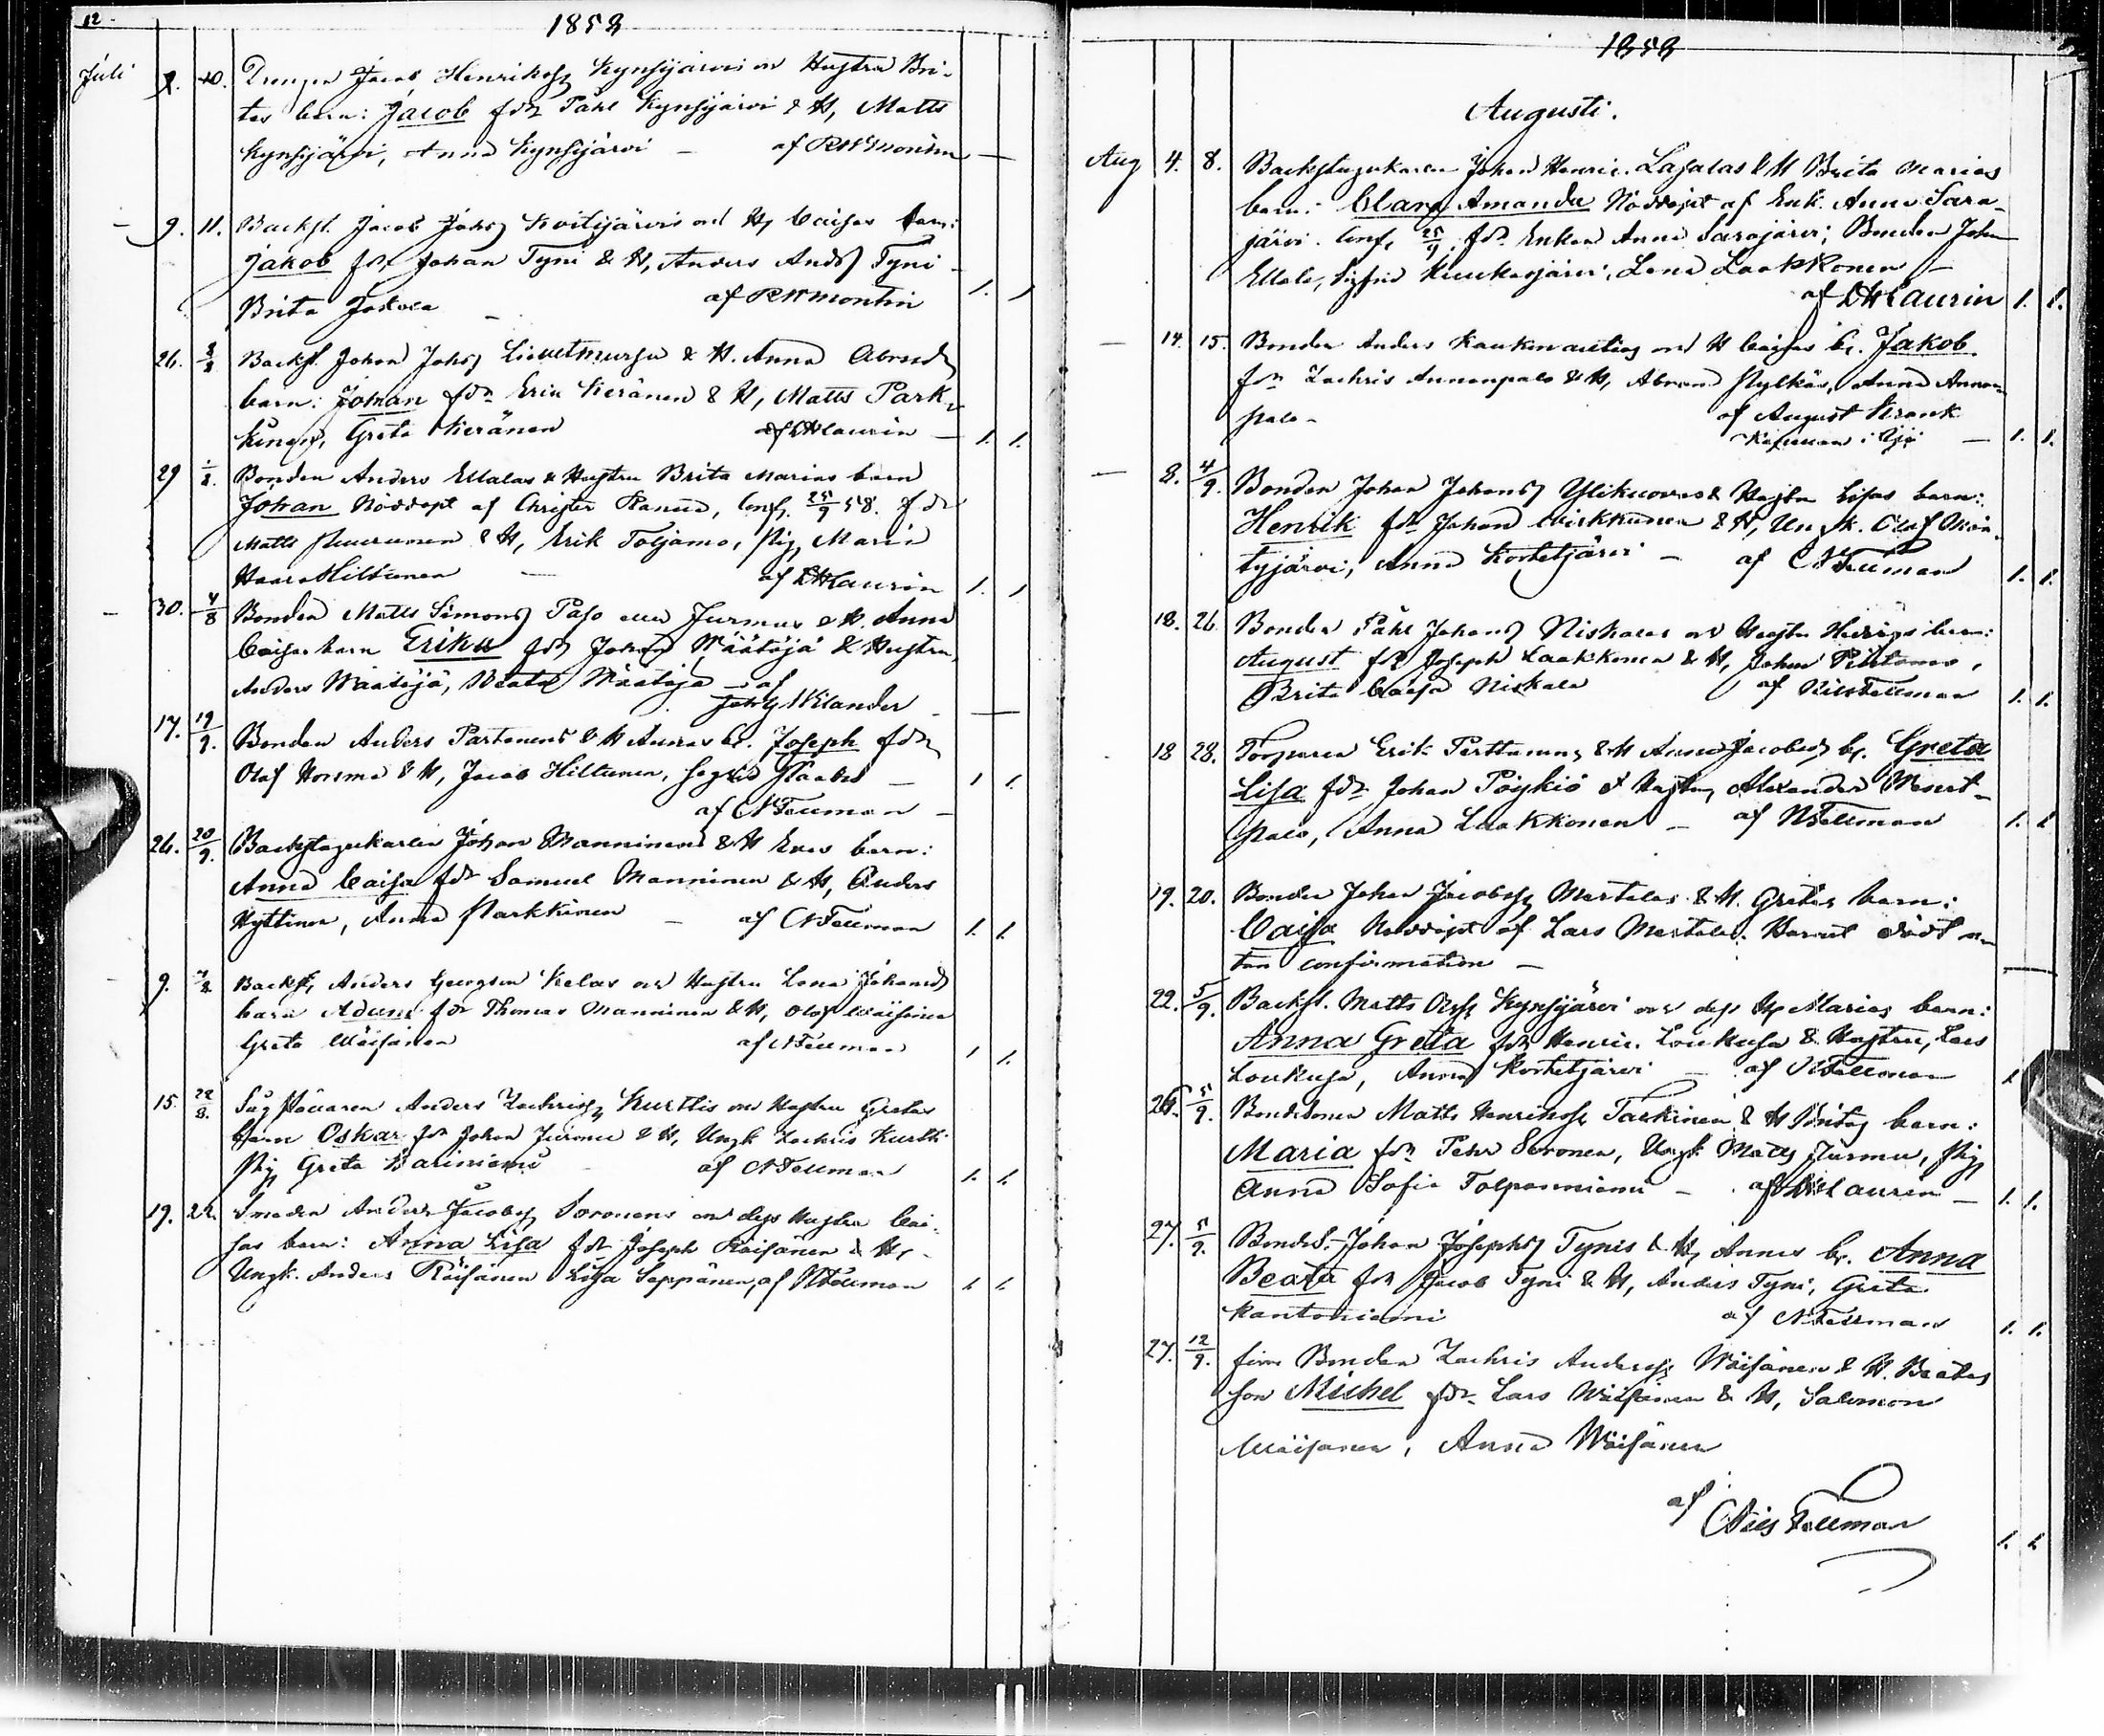 12.
1858
Juli 9. 10. Drengen Jacob Henrikss Kynsijärvis och Hustru Bri-
tas barn: Jacob fdr Påhl Kynsijärvi & H, Matts
Kynsijärvi, Anna Kynsijärvi – af RWMontin
– 9. 11. Backst. Jacob Johss Koitijärvis och H, Caisas barn:
Jakob fdr Johan Tyni & H, Anders Andss Tyni
Brita af RWMontin 1.
26. Backst. Johan Johss & H. Anna
barn: Johan fdr Eric Keränen & H, Matts Park-
kinen, Greta Keränen af DHLaurin – 1. 1.
29 Bonden Anders Ellalas & Hustru Brita Marias barn
Johan Nöddöpt af Christer Conf. 25/9 58. fdr
Matts & H, Erik Toljamo, Pig Maria
Hiltunen – af DHLaurin 1.
– 30. 4/8 Bonden Matts Simonss Paso eller Jurmus & H. Anna
Caisas barn Erika fdr Johan Määttäjä & Hustru,
Anders Määttäjä, Beata Määttäjä – af
Joh G Wilander
17. 19/9. Bonden Anders Partanens & H Annas br. Joseph fdr
Olof Horsma & H, Jacob Hiltunen, Sigrid –
af NFellman –
26. 20/9. Backstugukarlen Johan Manninens & H Evas barn:
Anna Caisa fdr Samuel Manninen & H, Anders
Hyttinen, Anna Parkkinen – af NFellman 1. 1.
9. Backst, Anders Georgson Kelas och Hustru Lena Johansd
barn Adam fdr Thomas Manninen & H, Olof Wäisänen
Greta Wäisänen af NFellman
15. 22/8. Anders Zachriss Kurttis och Hustru Gretas
barn Oskar fdr Johan Jurmu & H, Ungk Zachris Kurtti
Pig Greta Kariniemi af NFellman 1. 1.
19. 22. Smeden Anders Jacobss Soronens och dess Hustru Cai-
sas barn: Anna Lisa fdr Joseph Räisänen & H,
Ungk. Anders Räisänen Lisa Seppänen, af NFellman 1. 1.
1858
Augusti.
Aug 4. 8. Backstugukarlen Johan Henric. Lasalas & H Brita Marias
barn: Clara Amanda Nöddöpt af Enk. Anna Sara-
järvi. Conf, 25/9. fdr. Enkan Anna Sarajärvi; Bonden Johan
Ellala, Sigfrid Kuukasjärvi, Lena Laakkonen –
af DHLaurin 1. 1.
– 14. 15. Bonden Anders och H Caisas br. Jakob
fdr Zachris Annanpalo & H, Abram Pylkäs, Anna Annan-
palo – af August Kranck
Kapellan i – 1. 1.
– 8. 4/9. Bonden Johan Johanss Ylikuovas & Hustru Lisas barn:
Henrik fdr Johan Wirkkunen & H, Ungk. Olof Män-
tyjärvi, Anna Kortetjärvi – af NFellman 1. 1.
18. 26. Bonden Påhl Johanss Niskalas och Hustru Hedvigs barn:
August fdr Joseph Laakkonen & H, Johan
Brita Caisa Niskala af Nils Fellman 1. 1.
18 28. Torparen Erik Perttunens & H Anna Jacobsd br. Greta
Lisa fdr Johan Pöykiö & Hustru, Alexander
palo, Anna Laakkonen – af NFellman 1. 1
19. 20. Bonden Johan Jacobss Mertalas & H. Gretas barn:
Caisa Nöddöpt af Lars Mertala. Barnet dödt u-
tan confirmation –
22. 5/9. Backst. Matts Olss Kynsijärvi och dess H Marias barn:
Anna Greta fdr Henric Loukusa & Hustru, Lars
Loukusa, Anna Kortetjärvi – af NFellman
26. 5/9. Bondesonen Matts Henrikss Tarkinen & H Britas barn:
Maria fdr Pehr Soronen, Ungk Matts Jurmu, Pig
Anna Sofia Tolpanniemi – af DHLaurin – 1. 1.
27. 5/9. Bondes. Johan Josephss Tynis & H, Annas br. Anna
Beata fdr Jacob Tyni & H, Anders Tyni, Greta
Kantoniemi af NFellman 1. 1.
27. 12/9. Bonden Zachris Anderss Wäisänen & H. Beatas
son Michel fdr. Lars Wäisänen & H, Salomon
Wäisänen, Anna Wäisänen
af Nils Fellman 1. 1.